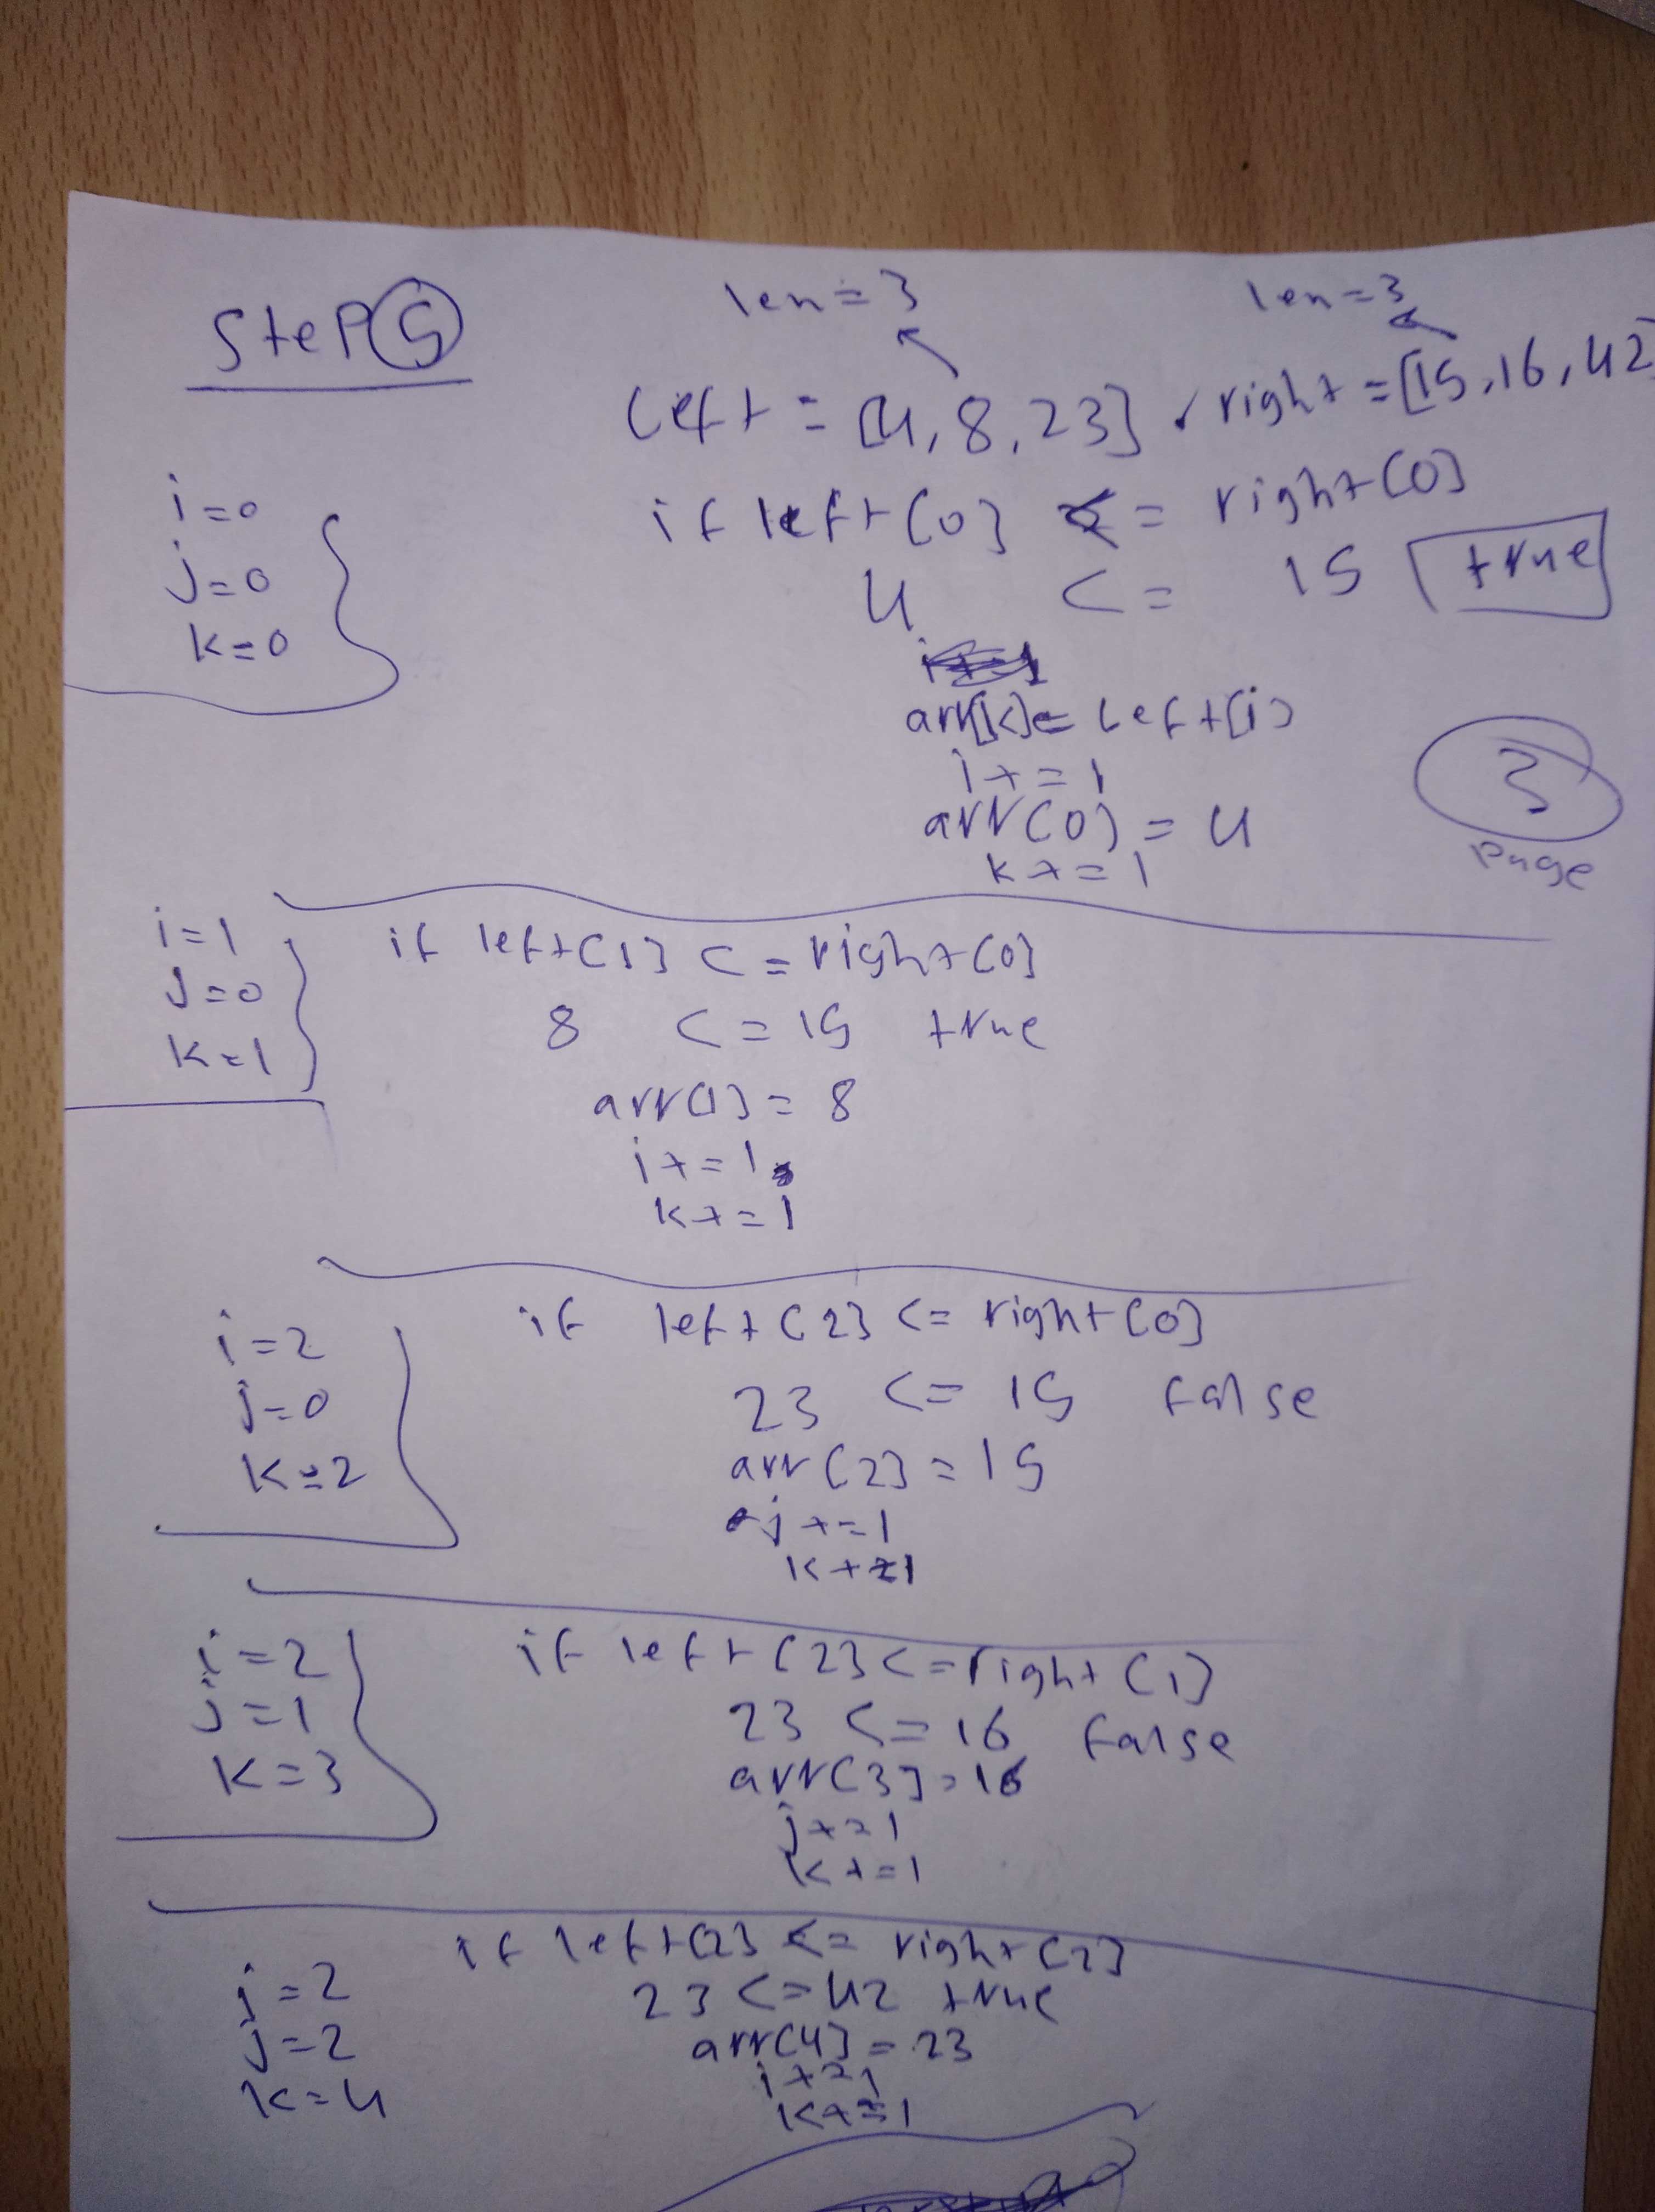 Step 5
len=3 len=3
left = [4,8,23] , right = [15,16,42]
i=0
j=0
k=0
if left[0] <= right[0]
4 <= 15 true
arr[k]= left[i]
i+=1
arr[0] = 4
k+=1
3
page
i=1
j=0
k=1
if left[1] <= right[0]
8 <= 15 true
arr[1] = 8
i+=1
k+=1
i=2
j=0
k=2
if left[2] <= right[0]
23 <= 15 false
arr[2] = 15
j+=1
k+=1
i=2
j=1
k=3
if left[2] <= right[1]
23 <= 16 false
arr[3] = 16
j+=1
k+=1
i=2
j=2
k=4
if left[2] <= right[2]
23 <= 42 true
arr[4] = 23
i+=1
k+=1